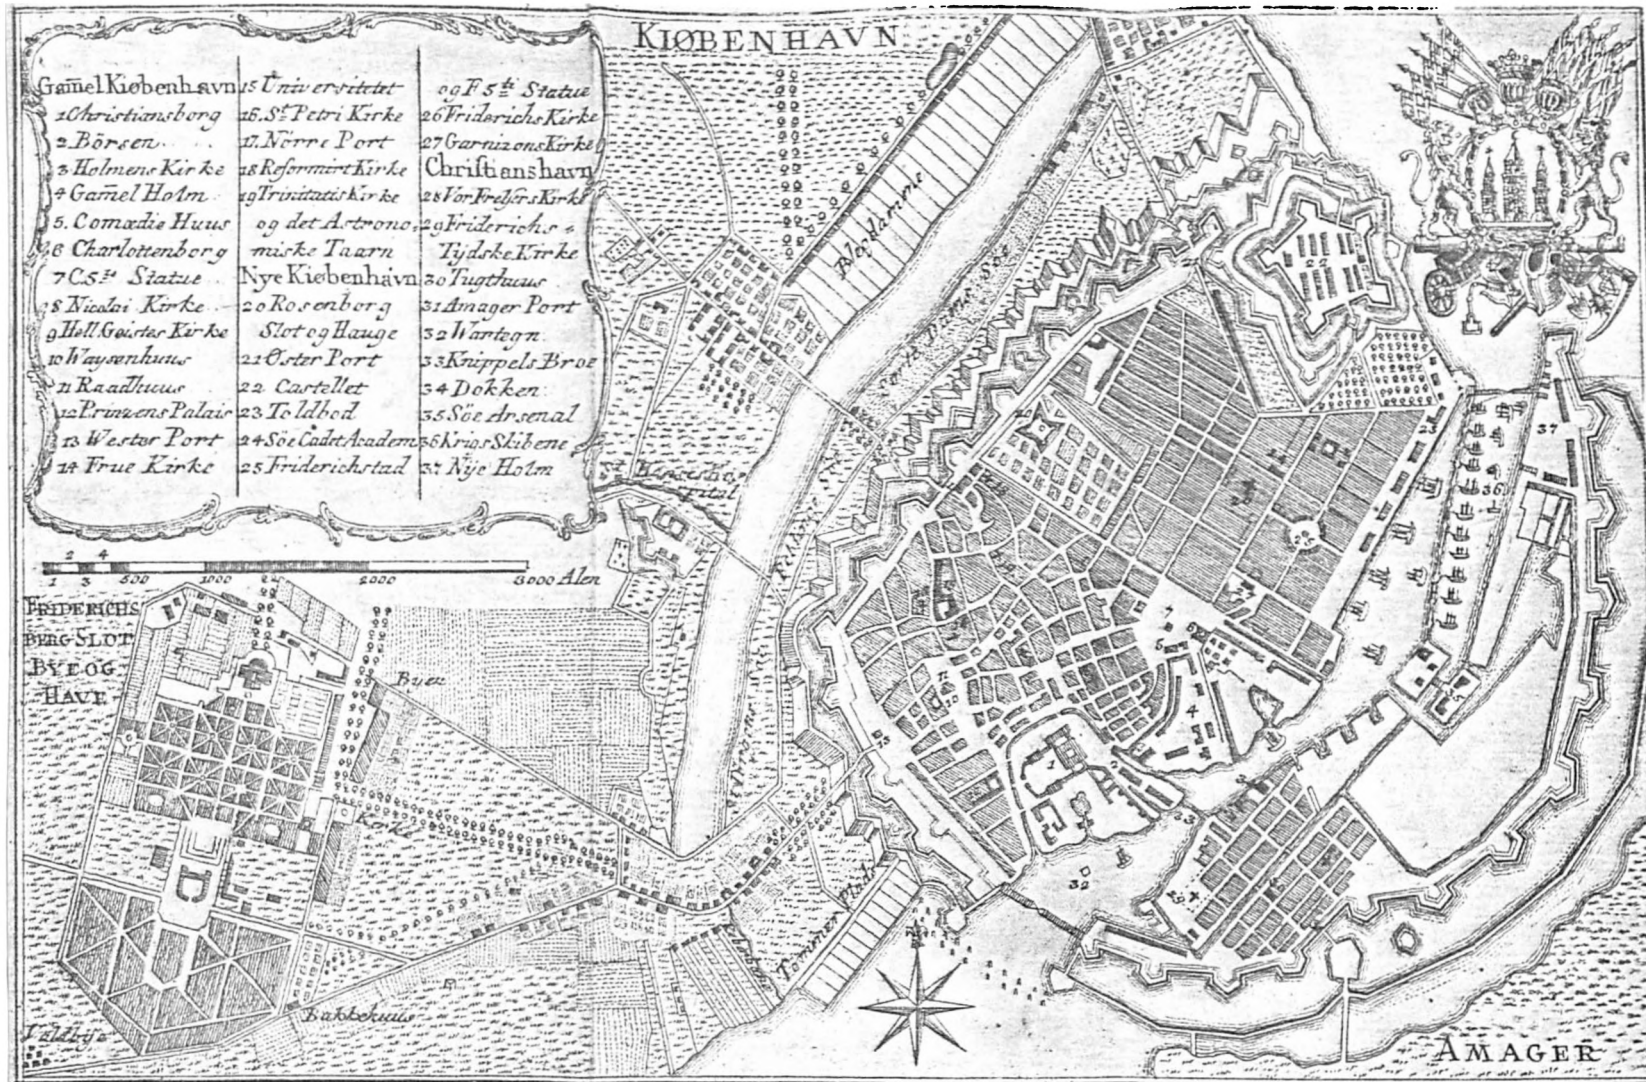 KIØBENHAVN
Gam̅el Kiøbenhavn
1 Christiansborg
2 Börsen
3 Holmens Kirke
4 Gam̅el Holm
5. Comœdie Huus
6 Charlottenborg
7 C 5te Statue
8 Nicolai Kirke
9 Hell. Geistes Kirke
10 Waysenhuus
11 Raadhuus
12 Prinzens Palais
13 Wester Port
14 Frue Kirke
15 Universitetet
16. St Petri Kirke
17. Nörre Port
18 Reformirt Kirke
19 Trinitatis Kirke
og det Astrono-
miske Taarn
Nye Kiøbenhavn
20 Rosenborg
Slot og Hauge
21 Øster Port
22 Castellet
23 Toldbod
24 Söe Cadet Academ
25 Friderichstad
og F 5ti Statue
26 Friderichs Kirke
27 Garnizons Kirke
Christianshavn
28 Vor Frelsers Kirke
29 Friderichs
Tydske Kirke
30 Tugthuus
31 Amager Port
32 Wartegn
33 Knippels Broe
34 Dokken
35 Söe Arsenal
36 Krigs Skibene
37 Nye Holm
2 4
1 3 500 1000 2000 3000 Alen
FRIDERICHS
BERG SLOT
BYE OG
HAVE
Byen
Kirke
Bakkehuus
Blegdamme
Sorte Dams Söe
Peblinge
Tommer Plads
AMAGER
1
2
4
5
6
7
13
20
22
23
32
33
35
36
37